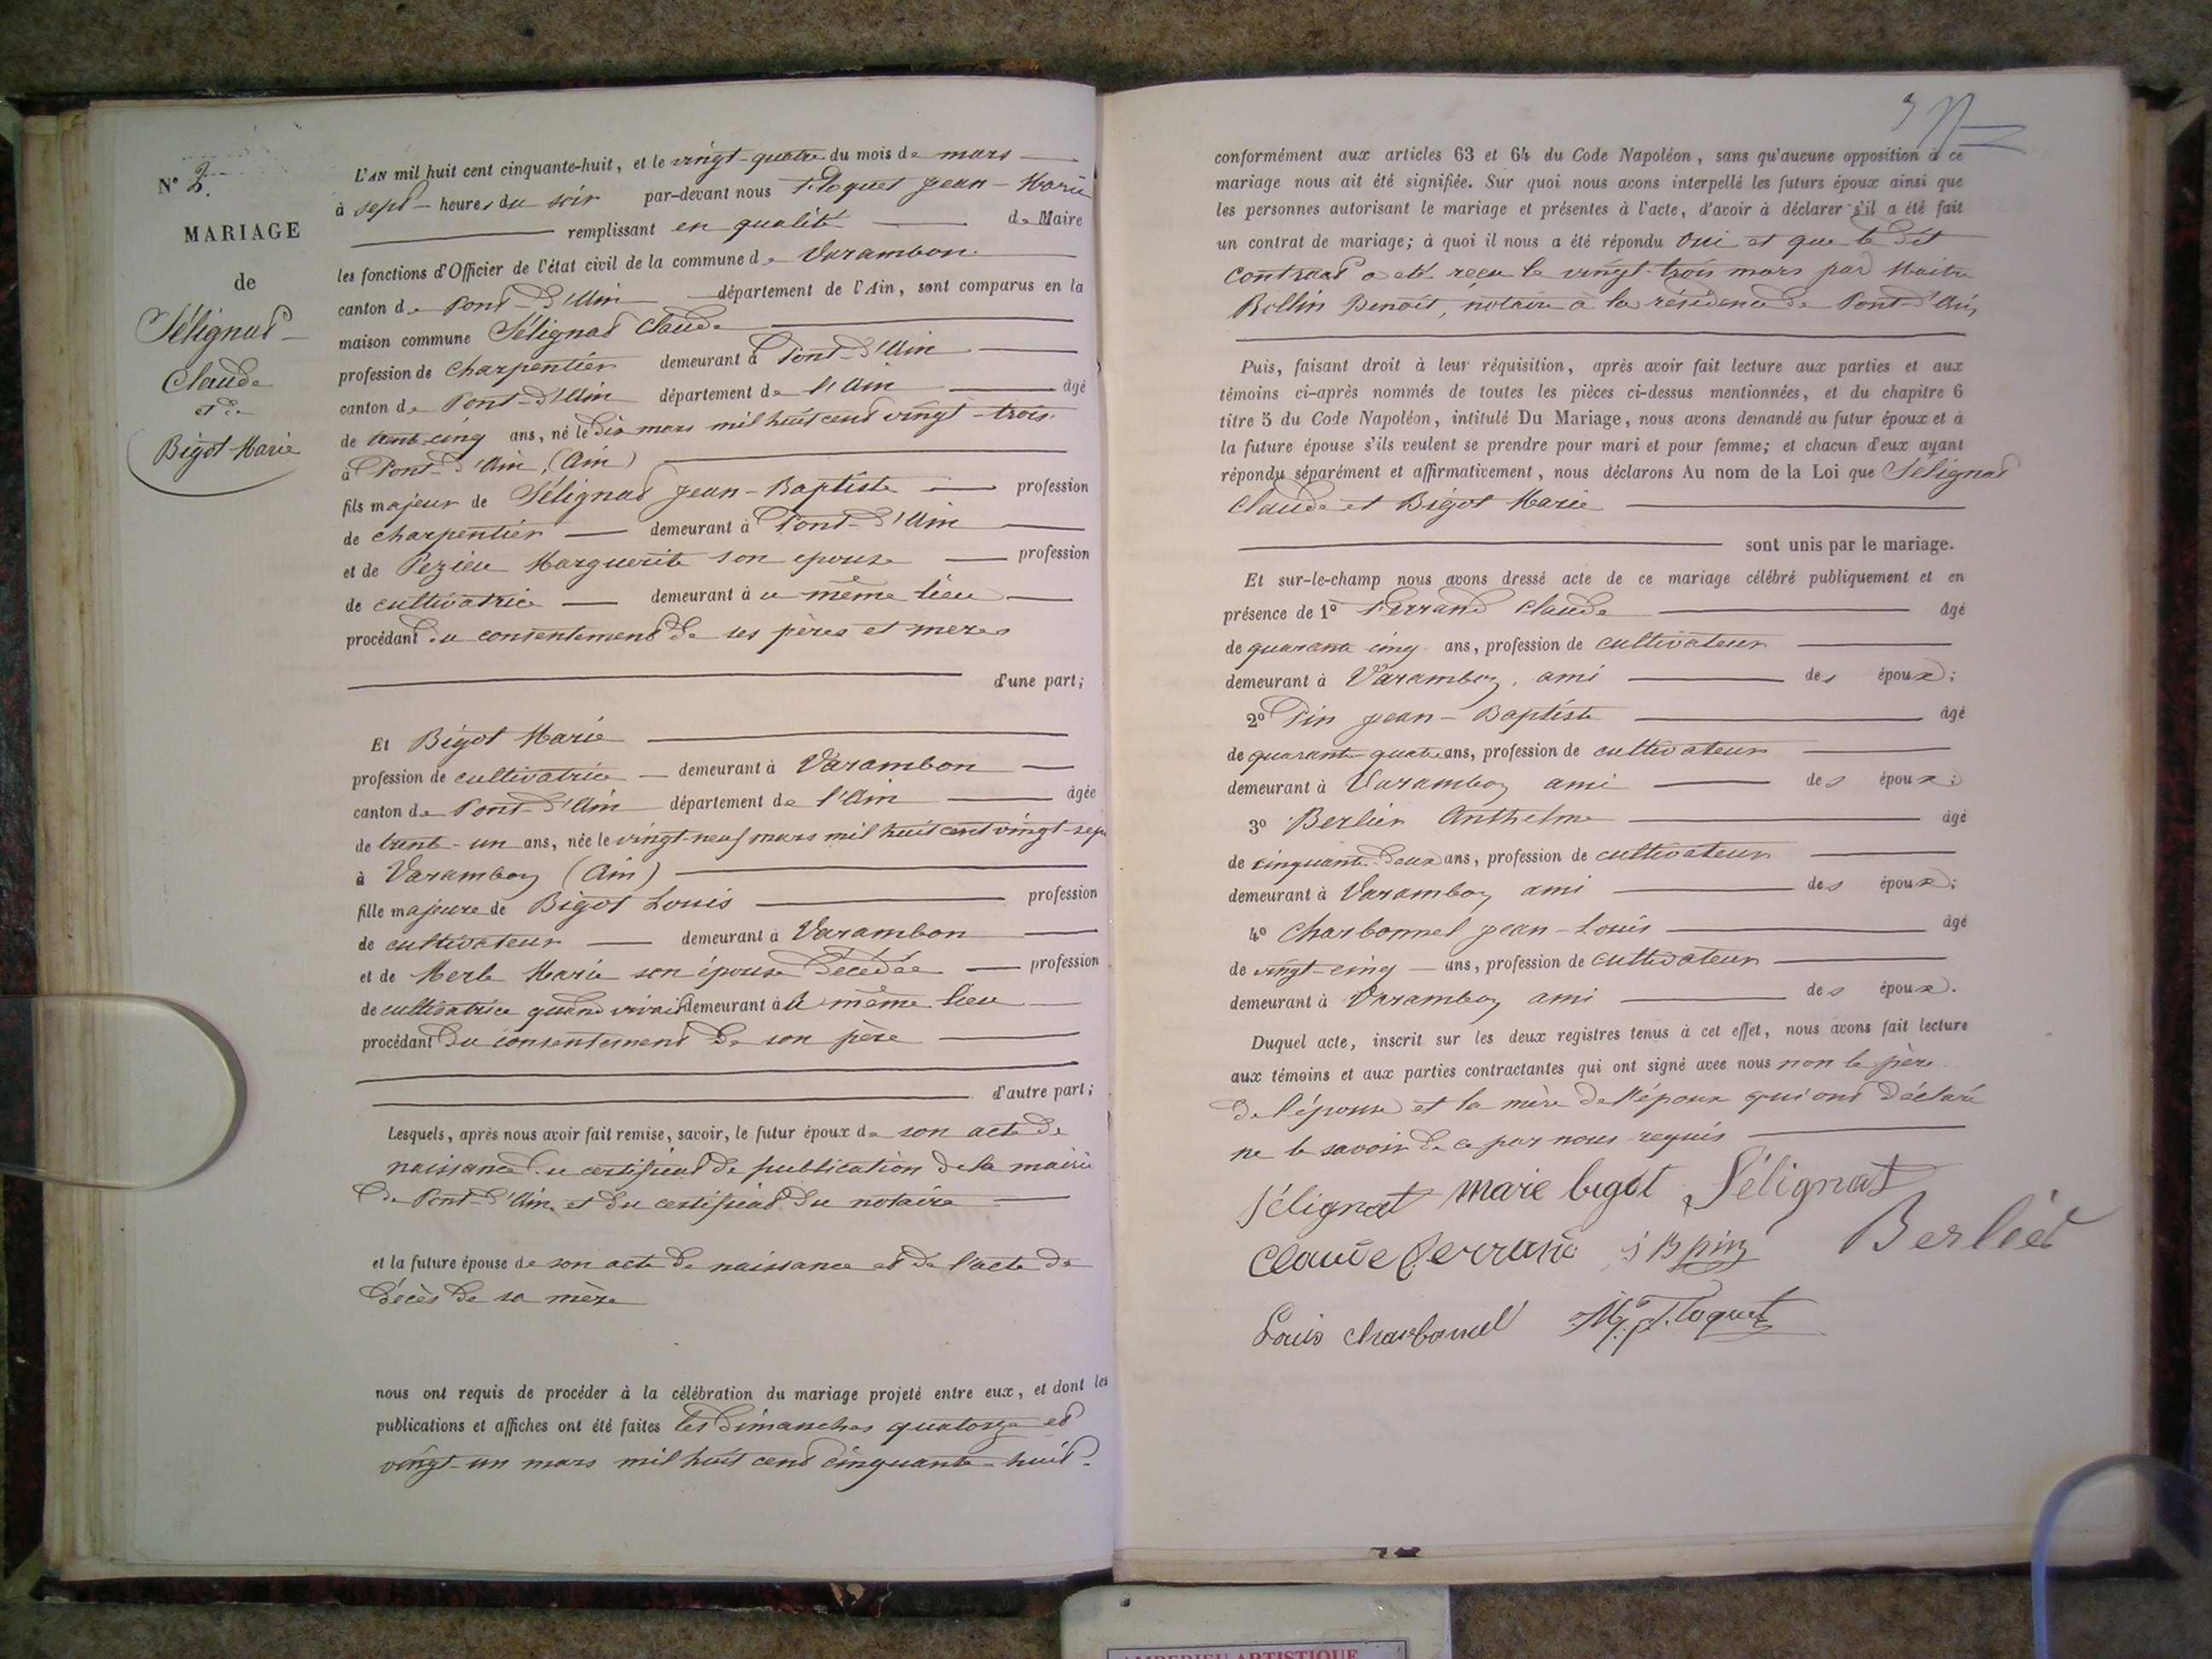 N° 2.
MARIAGE
de
Sélignat
Claude
et de
Bigot Marie
L'AN mil huit cent cinquante-huit, et le vingt-quatre du mois de mars
à sept heures du soir par-devant nous Floquet Jean-Marie
remplissant en qualité de Maire
les fonctions d'Officier de l'état civil de la commune de Varambon
canton de Pont-d'Ain département de l'Ain, sont comparus en la
maison commune Sélignat Claude
profession de charpentier demeurant à Pont-d'Ain
canton de Pont-d'Ain département de l'Ain âgé
de trente cinq ans, né le dix mars mil huit cent vingt-trois
à Pont-d'Ain, (Ain)
fils majeur de Sélignat Jean-Baptiste profession
de charpentier demeurant à Pont-d'Ain
et de Pezieu Marguerite son epouse profession
de cultivatrice demeurant à ce même lieu
procédant du consentement de ses pères et meres
d'une part;
Et Bigot Marie
profession de cultivatrice demeurant à Varambon
canton de Pont-d'Ain département de l'Ain âgée
de trente-un ans, née le vingt-neuf mars mil huit cent vingt-sept
à Varambon (Ain)
fille majeure de Bigot Louis profession
de cultivateur demeurant à Varambon
et de Merle Marie son épouse décédée profession
de cultivatrice quand vivait demeurant à le même lieu
procédant du consentement de son père
d'autre part;
Lesquels, après nous avoir fait remise, savoir, le futur époux de son acte de
naissance du certificat de publication de la mairie
de Pont-d'Ain et du certificat du notaire
et la future épouse de son acte de naissance et de l'acte de
décès de sa mère
nous ont requis de procéder à la célébration du mariage projeté entre eux, et dont les
publications et affiches ont été faites les dimanches quatorze et
vingt-un mars mil huit cent cinquante-huit.
conformément aux articles 63 et 64 du Code Napoléon, sans qu'aucune opposition à ce
mariage nous ait été signifiée. Sur quoi nous avons interpellé les futurs époux ainsi que
les personnes autorisant le mariage et présentes à l'acte, d'avoir à déclarer s'il a été fait
un contrat de mariage; à quoi il nous a été répondu Oui et que le dit
contrat a été reçu le vingt-trois mars par Maitre
Bollin Benoit, notaire à la résidence de Pont-d'Ain
Puis, faisant droit à leur réquisition, après avoir fait lecture aux parties et aux
témoins ci-après nommés de toutes les pièces ci-dessus mentionnées, et du chapitre 6
titre 5 du Code Napoléon, intitulé Du Mariage, nous avons demandé au futur époux et à
la future épouse s'ils veulent se prendre pour mari et pour femme; et chacun d'eux ayant
répondu séparément et affirmativement, nous déclarons Au nom de la Loi que Sélignat
Claude et Bigot Marie
sont unis par le mariage.
Et sur-le-champ nous avons dressé acte de ce mariage célébré publiquement et en
présence de 1° Ferrand Claude âgé
de quarante cinq ans, profession de cultivateur
demeurant à Varambon, ami des époux;
2° Pin Jean-Baptiste âgé
de quarante-quatre ans, profession de cultivateur
demeurant à Varambon ami des époux;
3° Berlier Anthelme âgé
de cinquante-deux ans, profession de cultivateur
demeurant à Varambon ami des époux;
4° Charbonnel Jean-Louis âgé
de vingt-cinq ans, profession de cultivateur
demeurant à Varambon ami des époux.
Duquel acte, inscrit sur les deux registres tenus à cet effet, nous avons fait lecture
aux témoins et aux parties contractantes qui ont signé avec nous non le père
de l'épouse et la mère de l'époux qui ont déclaré
ne le savoir de ce par nous requis
Sélignat marie bigot Sélignat
Claude ferrand J B pin Berliet
Louis charbonnel Floquet
AMBERIEU ARTISTIQUE